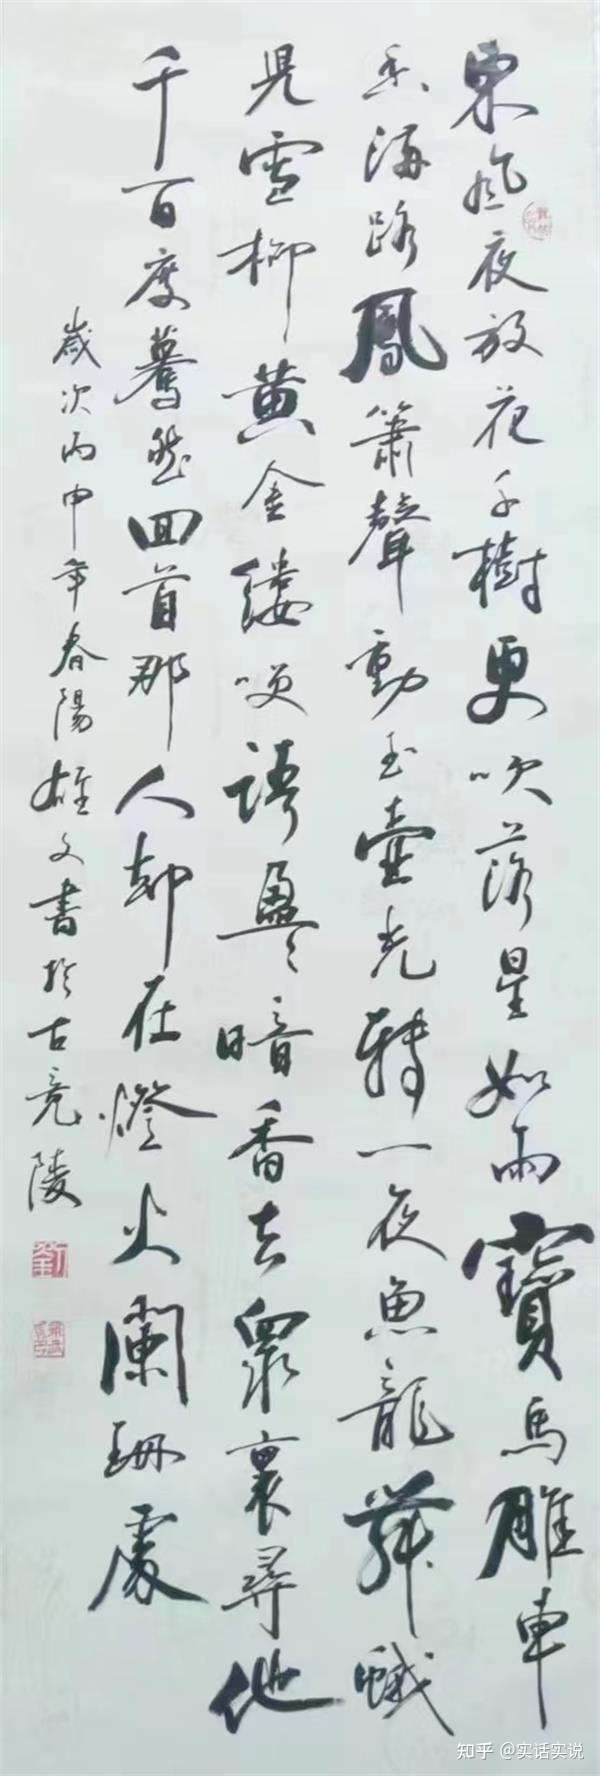 東風夜放花千樹更吹落星如雨寶馬雕車
香滿路鳳簫聲動玉壺光轉一夜魚龍舞蛾
兒雪柳黃金縷笑語盈〻暗香去衆裏尋他
千百度驀然回首那人却在燈火闌珊處
歲次丙申年春陽雄文書於古竟陵
知乎 @实话实说